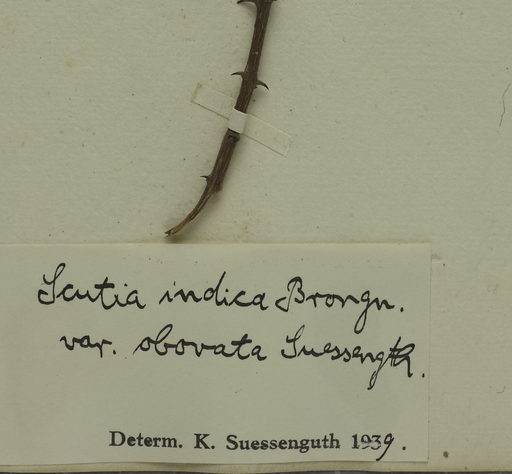 Scutia indica Brongn.
var. obovata Suessength.
Determ. K. Suessenguth 1939.